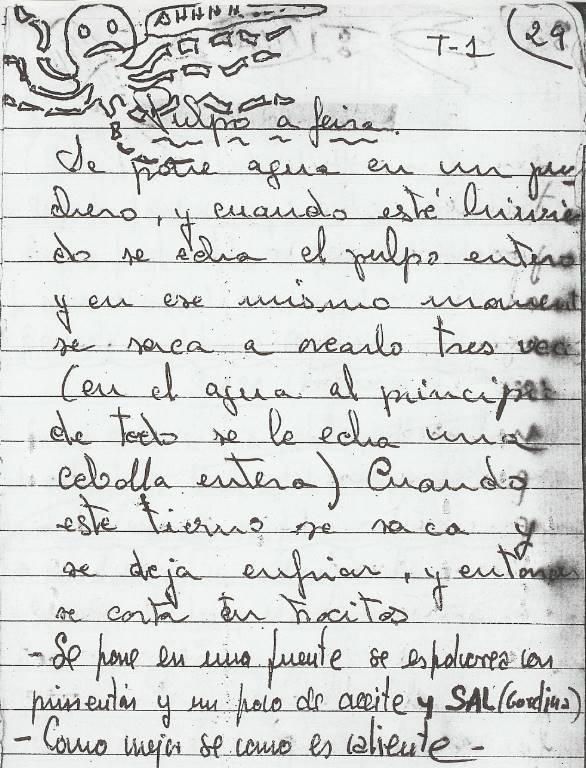 AHHHH....
T-1 29
Pulpo a feira.
Se pone agua en un pu
chero, y cuando esté hirvien
do se echa el pulpo entero
y en ese mismo moment
se saca a orearlo tres vec
(en el agua al principio
de todo se le echa una
cebolla entera) Cuando
este tierno se saca y
se deja enfriar, y entonces
se corta en trocitos
- Se pone en una fuente se espolvorea con
pimentón y un poco de aceite y SAL (Gordina)
- Como mejor se come es caliente -